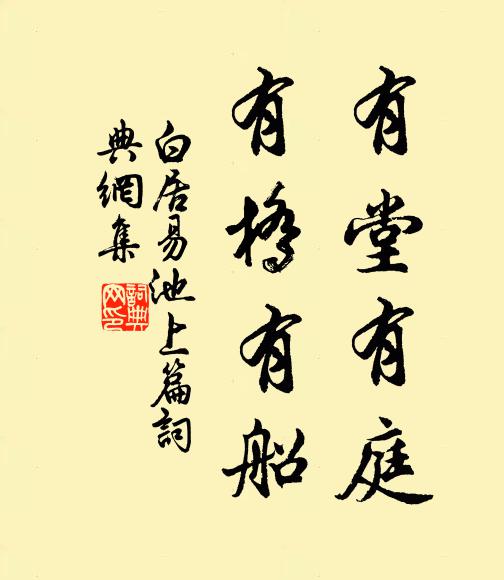 有堂有庭
有橋有船
白居易池上篇詞
典網集
詞典網印